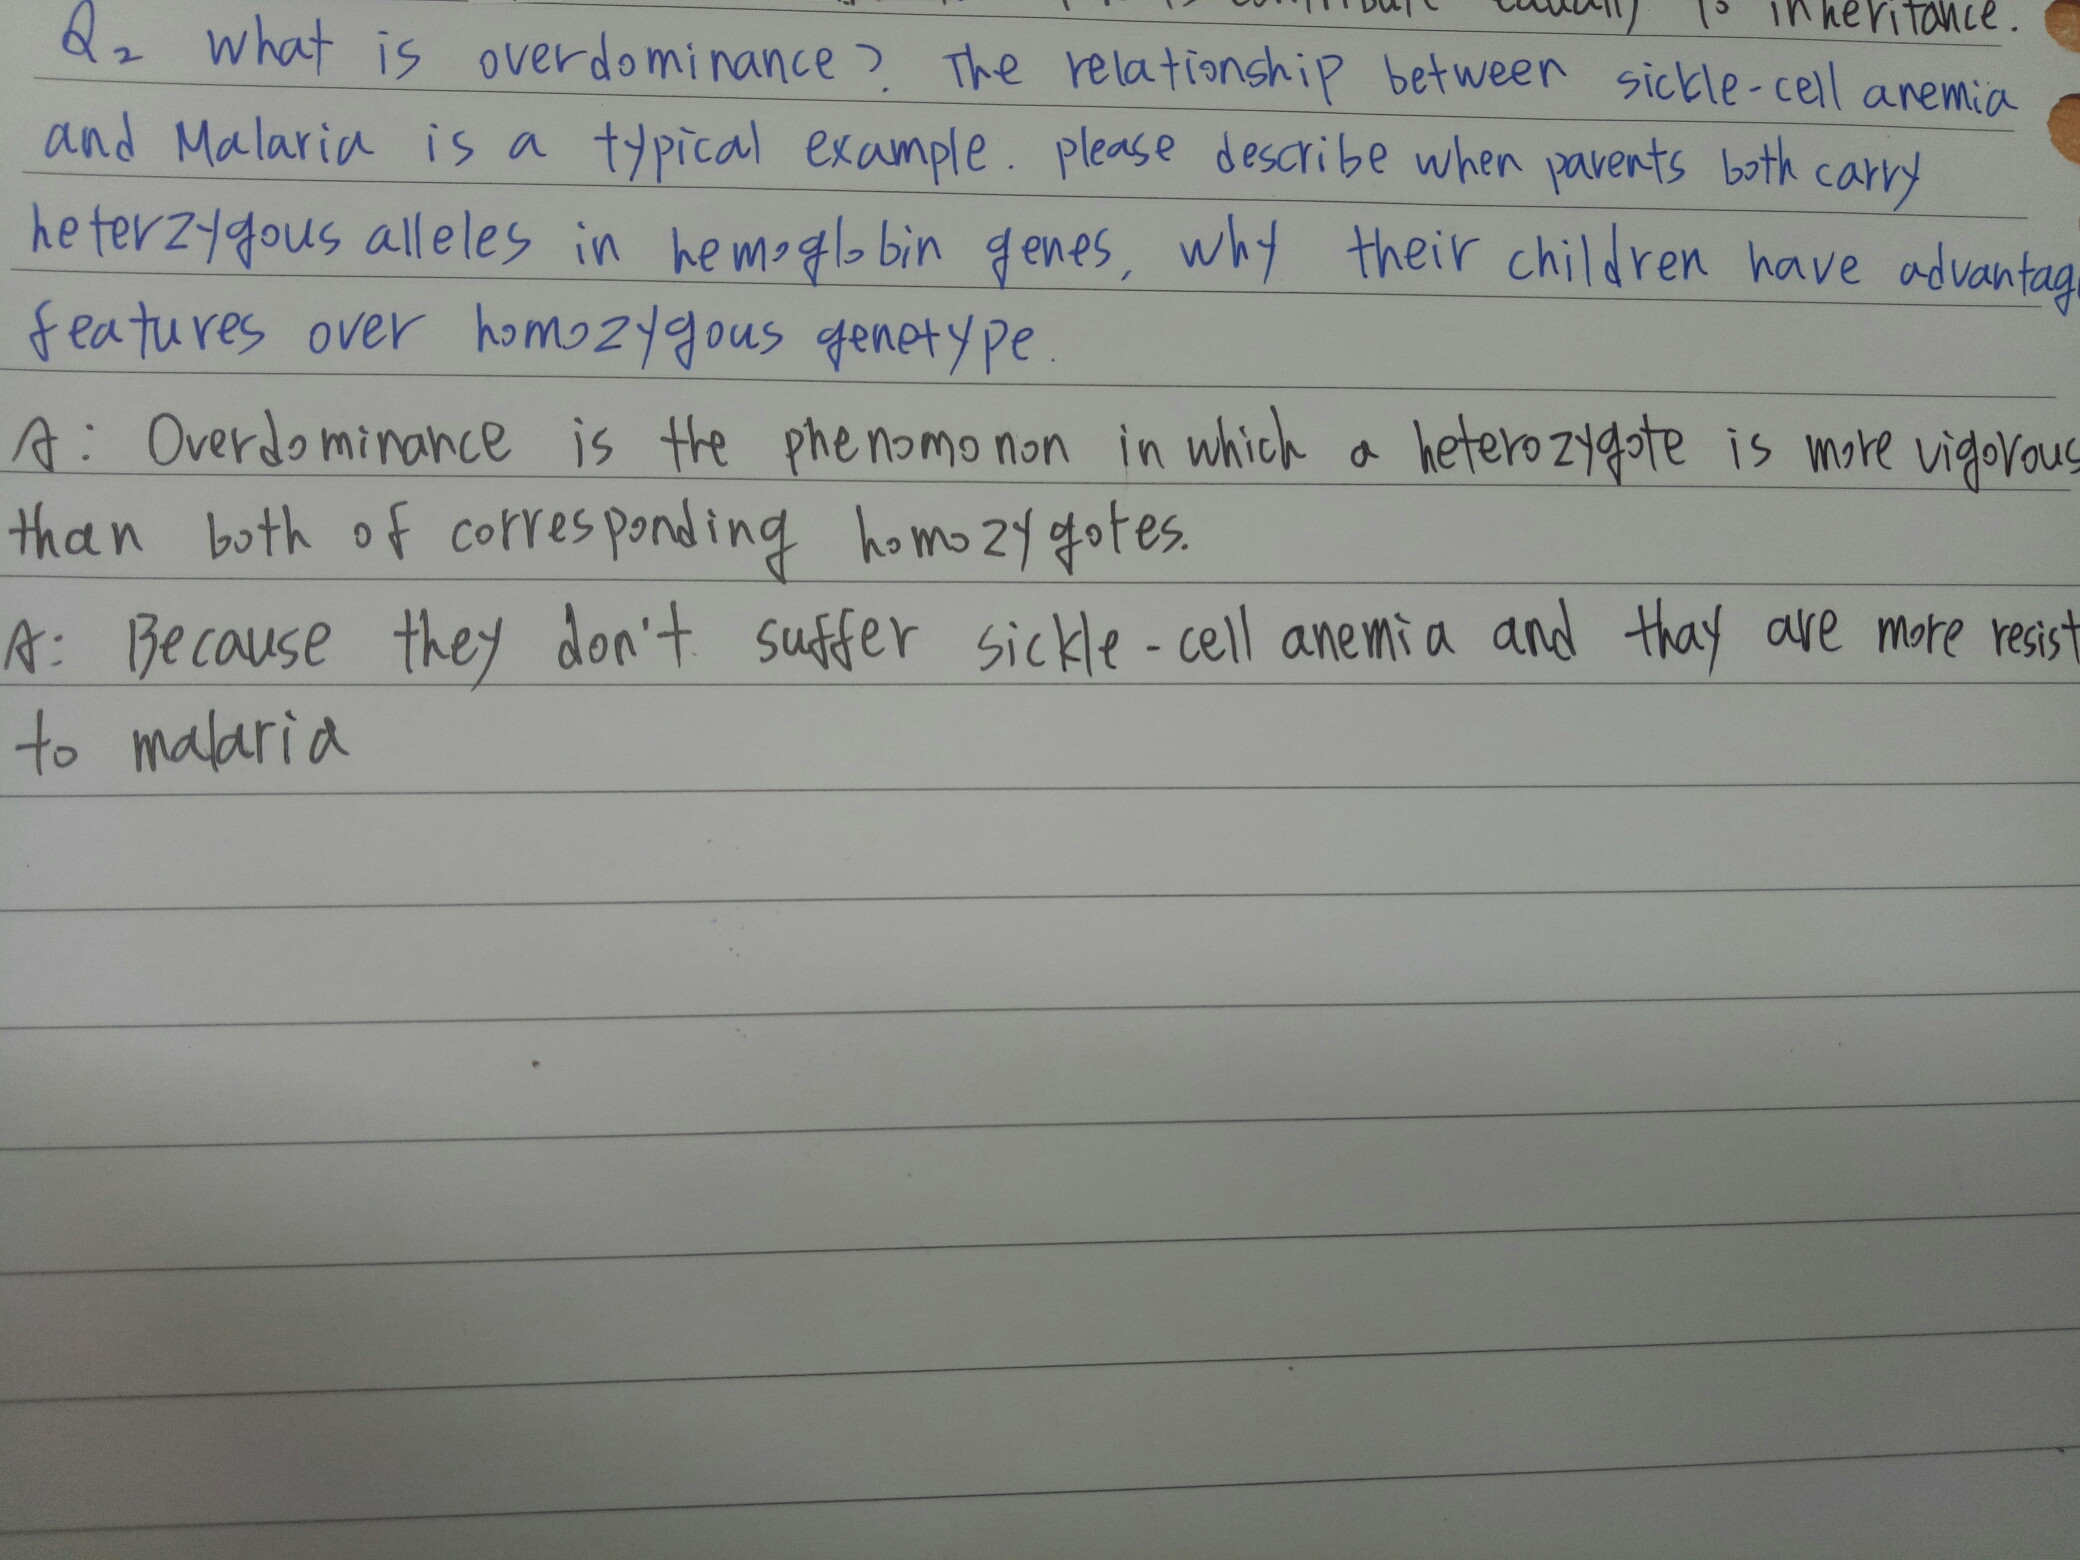 inheritance.
Q2 What is overdominance? The relationship between sickle-cell anemia
and Malaria is a typical example. please describe when parents both carry
heterzygous alleles in hemoglobin genes, why their children have advantag
features over homozygous genetype.
A: Overdominance is the phenomonon in which a heterozygote is more vigorous
than both of corresponding homozygotes.
A: Because they don't suffer sickle-cell anemia and thay are more resist
to malaria